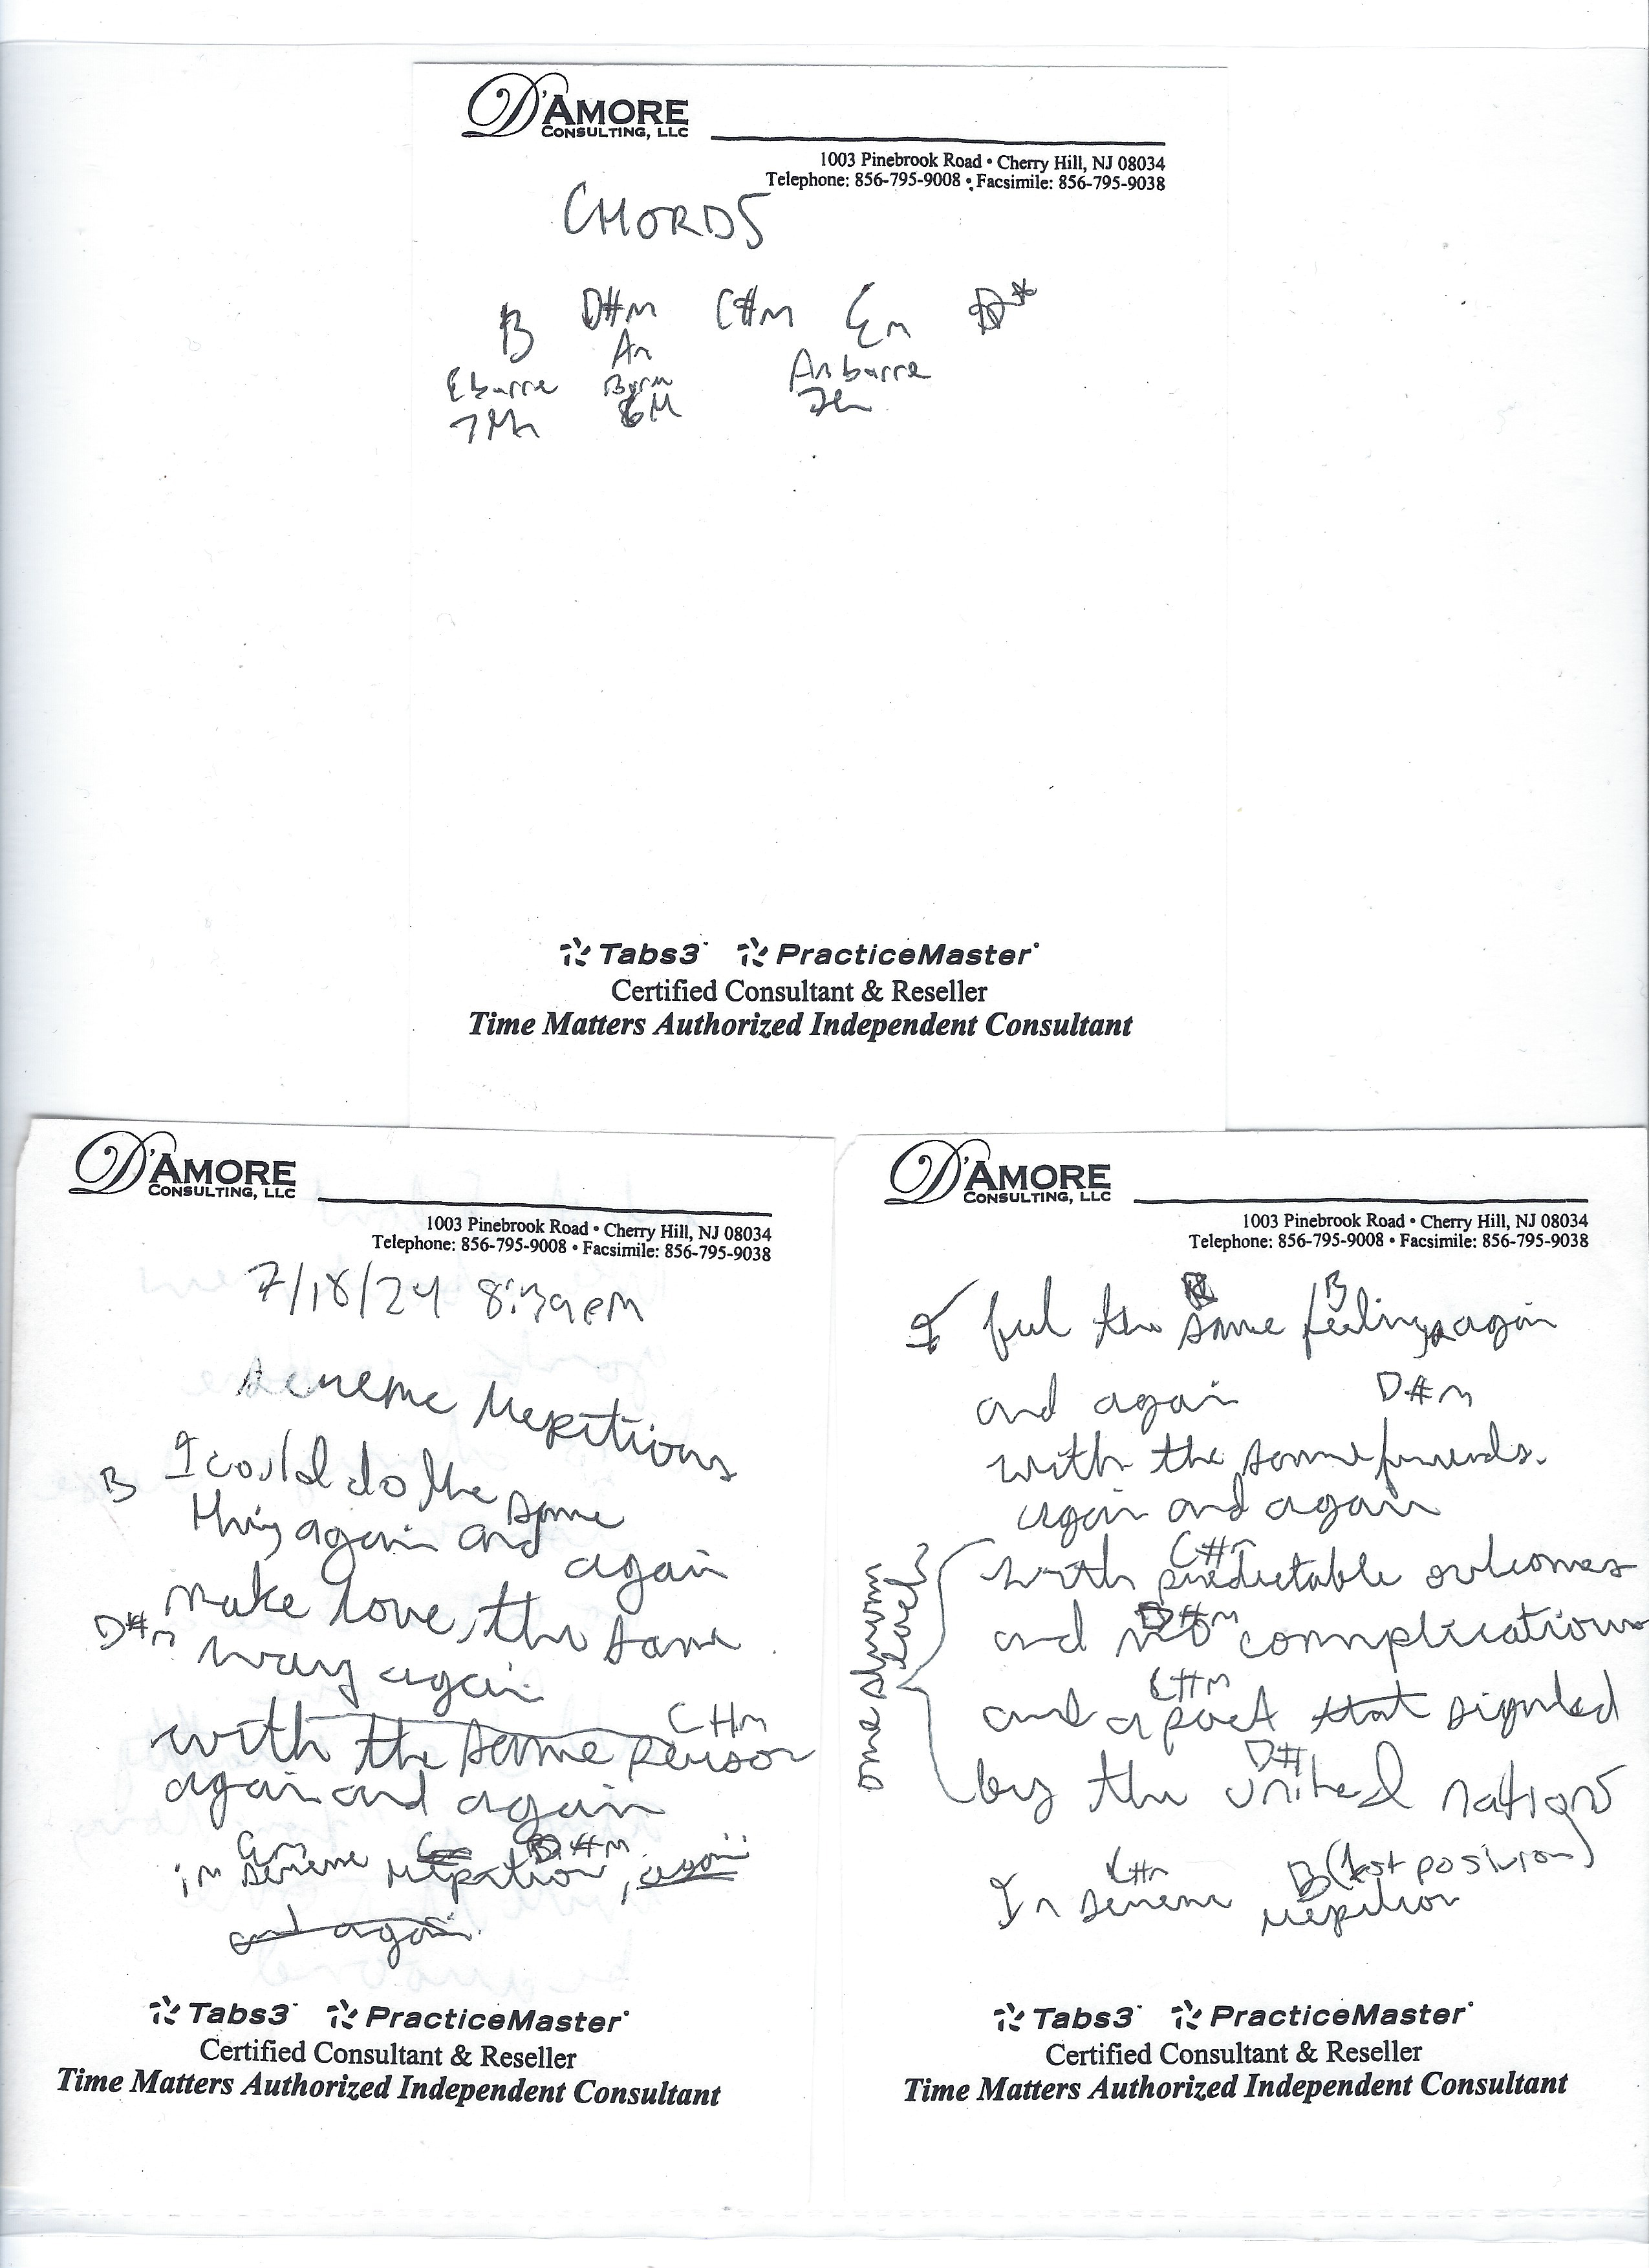 D'AMORE
CONSULTING, LLC
1003 Pinebrook Road • Cherry Hill, NJ 08034
Telephone: 856-795-9008 • Facsimile: 856-795-9038
CHORDS
B D#m C#m Em
Am
E barre Am barre
7th
Tabs3 PracticeMaster
Certified Consultant & Reseller
Time Matters Authorized Independent Consultant
D'AMORE
CONSULTING, LLC
1003 Pinebrook Road • Cherry Hill, NJ 08034
Telephone: 856-795-9008 • Facsimile: 856-795-9038
7/18/24 8:39PM
serene repetitions
B I could do the same
thing again and
again
make love, the same
D#m way again
C#m
with the same person
again and again
D#m
in serene repetition, again
and again.
Tabs3 PracticeMaster
Certified Consultant & Reseller
Time Matters Authorized Independent Consultant
D'AMORE
CONSULTING, LLC
1003 Pinebrook Road • Cherry Hill, NJ 08034
Telephone: 856-795-9008 • Facsimile: 856-795-9038
B
I feel the same feelings again
and again D#m
with the same friends.
again and again
one strum
each
C#m
with predictable outcomes
D#m
and no complications
C#m
and a pact that signed
D#
by the united nations
C#m B (1st position)
In serene repetition
Tabs3 PracticeMaster
Certified Consultant & Reseller
Time Matters Authorized Independent Consultant